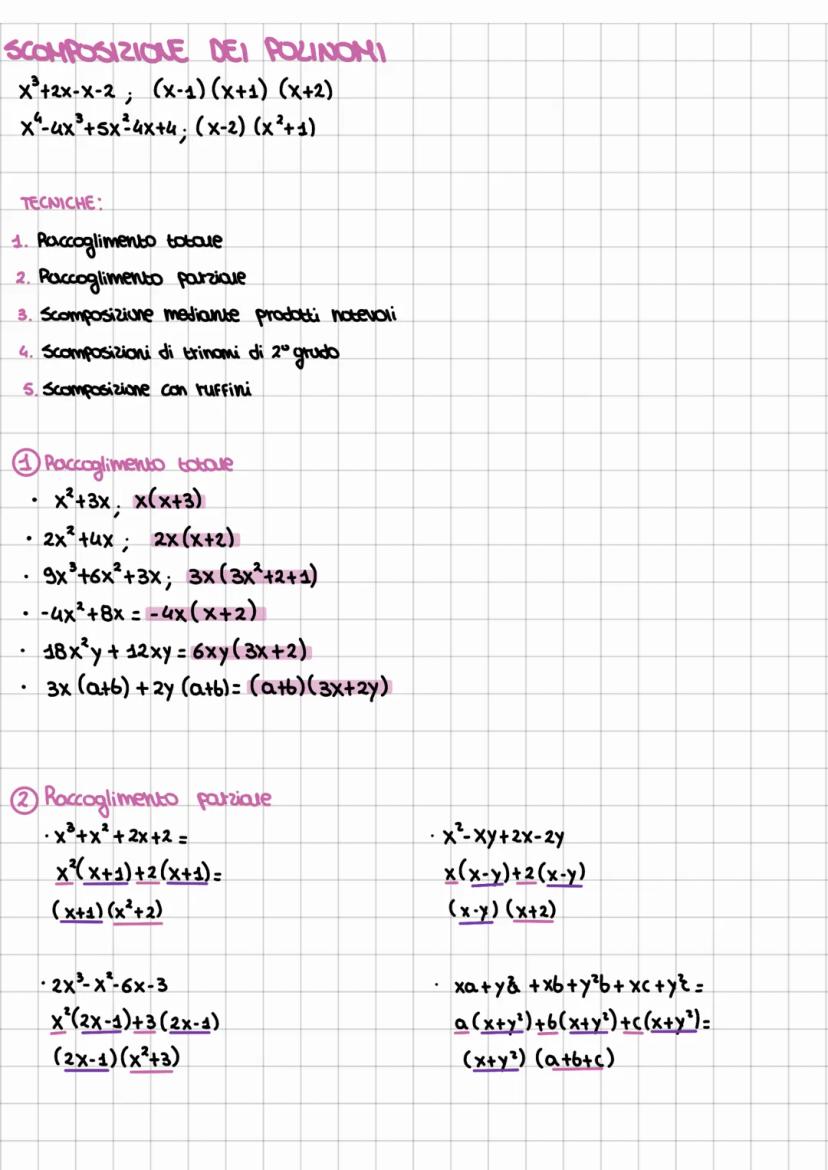 SCOMPOSIZIONE DEI POLINOMI
x³+2x-x-2 ; (x-1) (x+1) (x+2)
x⁴-4x³+5x²-4x+4 ; (x-2) (x²+1)
TECNICHE:
1. Raccoglimento totale
2. Raccoglimento parziale
3. Scomposizione mediante prodotti notevoli
4. Scomposizioni di trinomi di 2° grado
5. Scomposizione con ruffini
① Raccoglimento totale
· x²+3x ; x(x+3)
· 2x²+4x ; 2x(x+2)
· 9x³+6x²+3x ; 3x(3x²+2+1)
· -4x²+8x = -4x(x+2)
· 18x²y + 12xy = 6xy(3x+2)
· 3x (a+b) + 2y (a+b) = (a+b)(3x+2y)
② Raccoglimento parziale
· x³+x²+2x+2 =
x²(x+1)+2(x+1)=
(x+1)(x²+2)
· x²-xy+2x-2y
x(x-y)+2(x-y)
(x-y) (x+2)
· 2x³-x²-6x-3
x²(2x-1)+3(2x-1)
(2x-1)(x²+3)
· xa+y²a +xb+y²b+xc+y²c =
a(x+y²)+b(x+y²)+c(x+y²)=
(x+y²) (a+b+c)